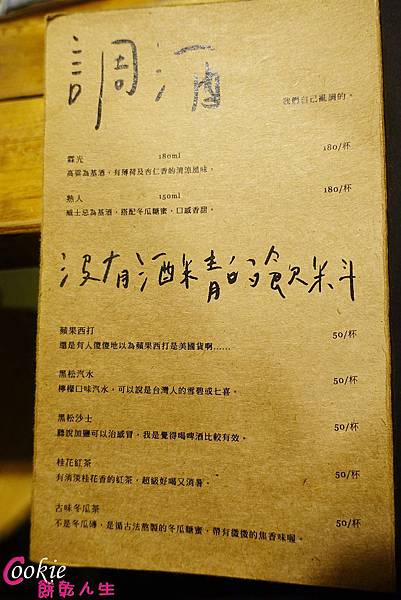 調酒
我們自己亂調的。
霖光 180ml 180/杯
高粱為基酒,有薄荷及杏仁香的清涼風味。
熟人 150ml 180/杯
威士忌為基酒,搭配冬瓜糖蜜,口感香甜。
沒有酒精的飲料
蘋果西打 50/杯
還是有人傻傻地以為蘋果西打是美國貨啊......
黑松汽水 50/杯
檸檬口味汽水,可以說是台灣人的雪碧或七喜。
黑松沙士 50/杯
聽說加鹽可以治感冒,我是覺得喝啤酒比較有效。
桂花紅茶 50/杯
有清淡桂花香的紅茶,超級好喝又消暑。
古味冬瓜茶 50/杯
不是冬瓜磚,是循古法熬製的冬瓜糖蜜,帶有微微的焦香味喔。
Cookie
餅乾人生